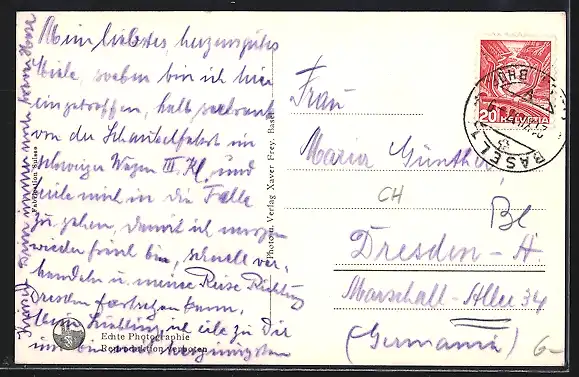 Mein liebstes, herzensgutes
Miele, soeben bin ich hier
eingetroffen, halb seekrank
von der Schaukelfahrt im
Schweizer Wagen III. Kl. und
eile mich in die Falle
zu gehen, damit ich morgen
wieder frisch bin, schnell ver-
handeln u. meine Reise Richtung
Dresden fortsetzen kann.
Mein Liebling, ich eile zu Dir
und bin mit herzinnigsten
Fabrication Suisse
Echte Photographie
Reproduktion verboten
Photo u. Verlag Xaver Frey, Basel
Frau
Maria Günther,
CH
Bl
Dresden-A.
Marschall-Allee 34
(Germania)
6-
20 HELVETIA
BASEL
BHF